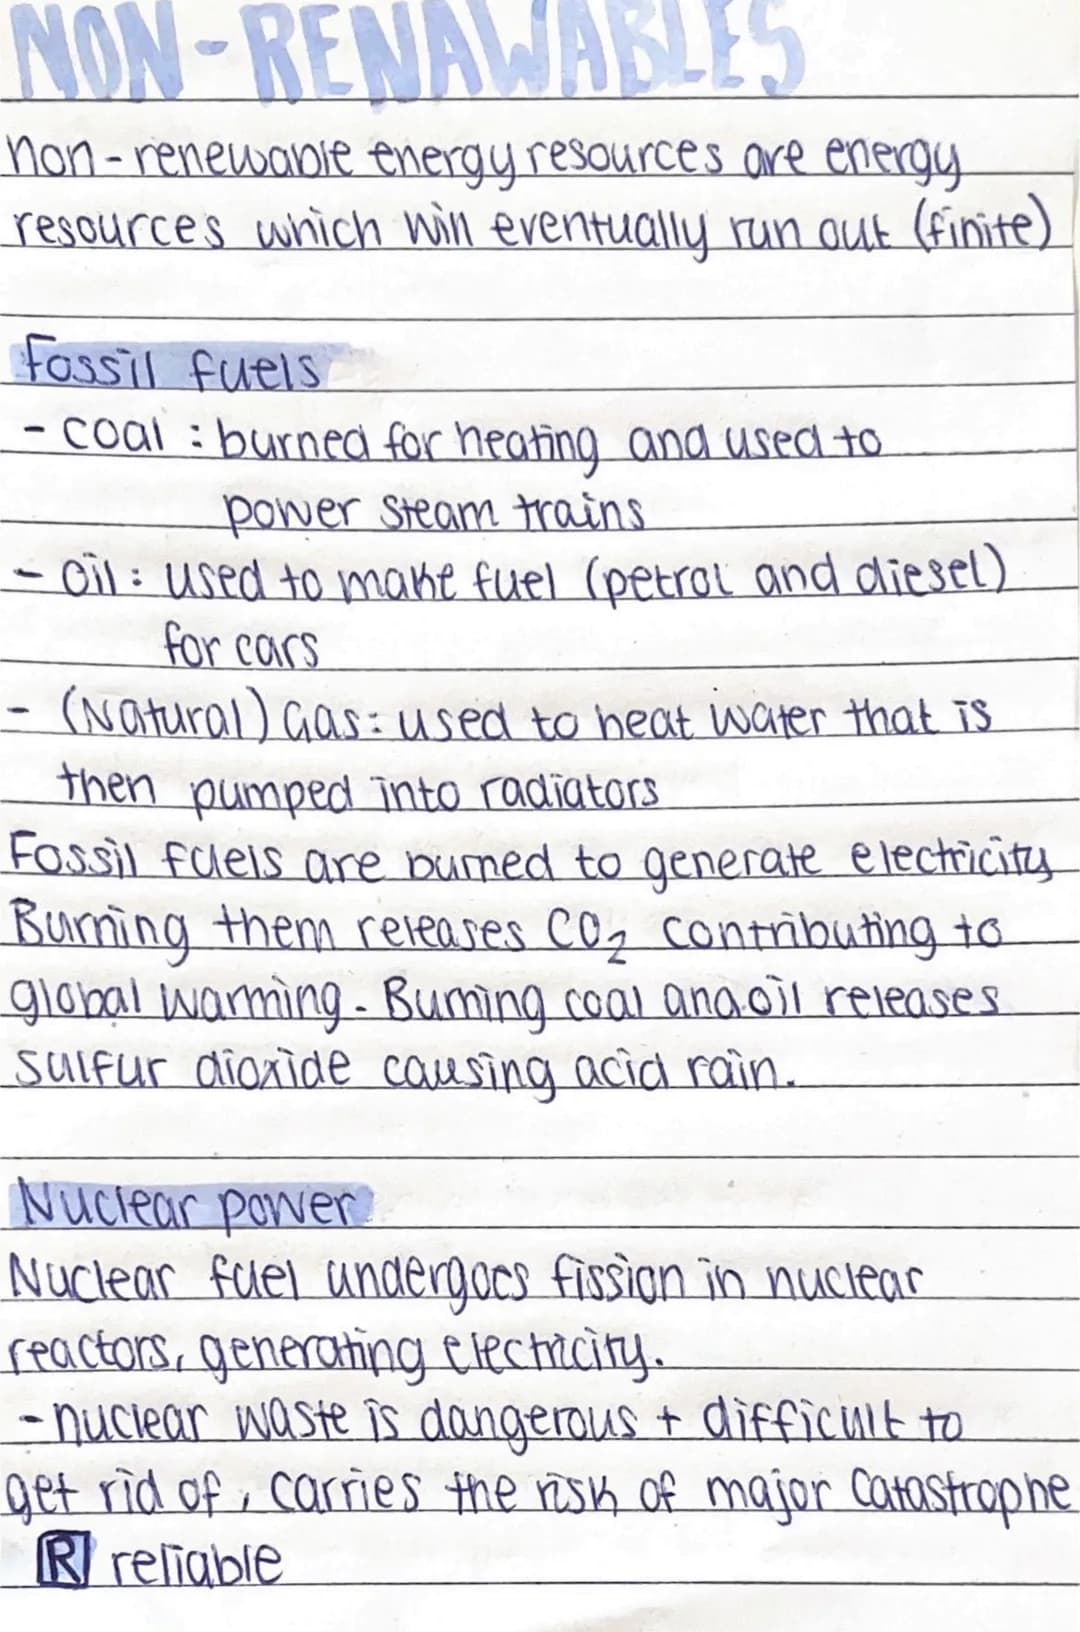 NON-RENAWABLES
non-renewable energy resources are energy
resources which will eventually run out (finite)
Fossil fuels
- coal : burned for heating and used to
power steam trains
- oil : used to make fuel (petrol and diesel)
for cars
- (Natural) Gas : used to heat water that is
then pumped into radiators
Fossil fuels are burned to generate electricity
Burning them releases CO₂ contributing to
global warming. Burning coal and oil releases
sulfur dioxide causing acid rain.
Nuclear power
Nuclear fuel undergoes fission in nuclear
reactors, generating electricity.
- nuclear waste is dangerous + difficult to
get rid of, carries the risk of major catastrophe
R reliable